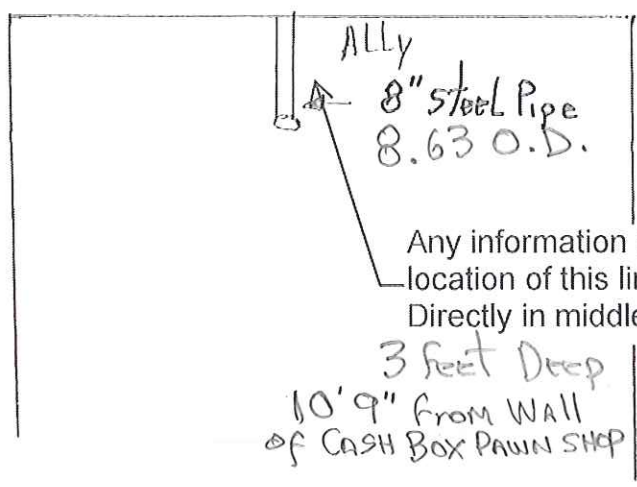 ALLy
8" steel Pipe
8.63 O.D.
Any information
location of this li
Directly in middle
3 feet Deep
10'9" from WAll
of CASH BOX PAWN SHOP